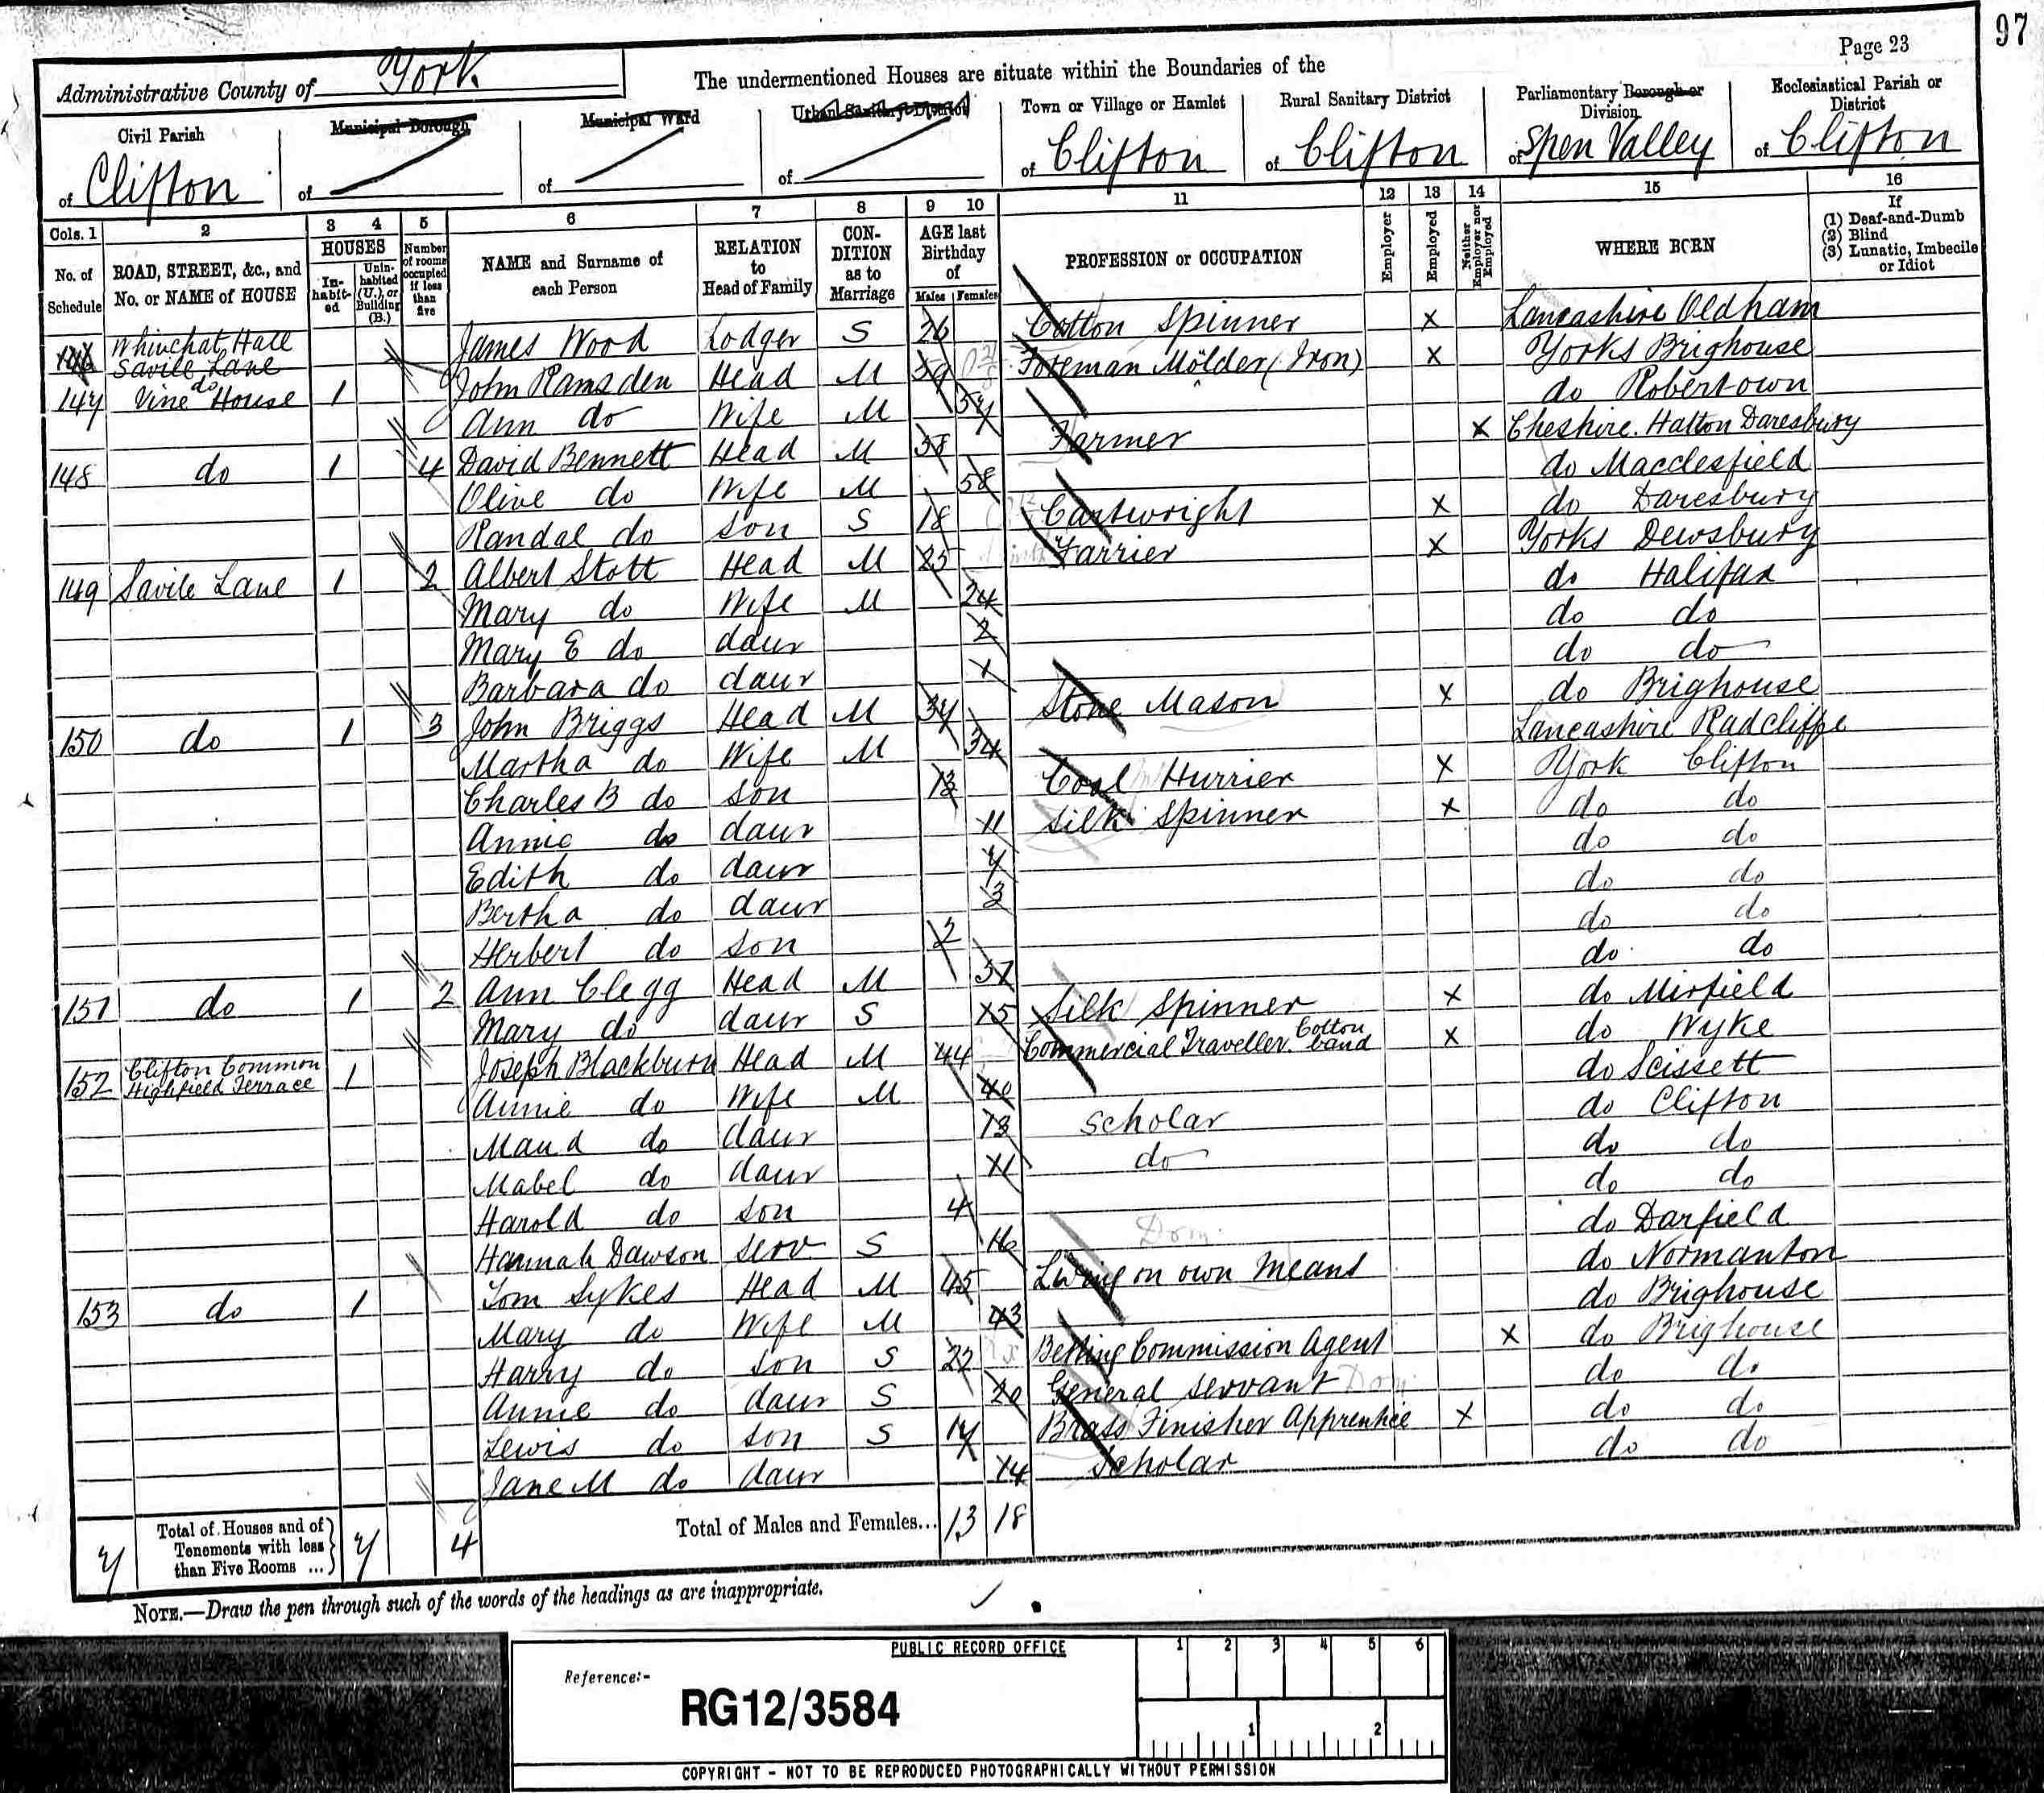 97
Page 23
Administrative County of York
The undermentioned Houses are situate within the Boundaries of the
Civil Parish of Clifton
Municipal Borough of
Municipal Ward of
Urban Sanitary District of
Town or Village or Hamlet of Clifton
Rural Sanitary District of Clifton
Parliamentary Borough or Division of Spen Valley
Ecclesiastical Parish or District of Clifton
Cols. 1 2 3 4 5 6 7 8 9 10 11 12 13 14 15 16
No. of Schedule
ROAD, STREET, &c., and No. or NAME of HOUSE
HOUSES
In-habit-ed
Unin-habited (U.), or Building (B.)
Number of rooms occupied if less than five
NAME and Surname of each Person
RELATION to Head of Family
CON-DITION as to Marriage
AGE last Birthday of
Males Females
PROFESSION or OCCUPATION
Employer
Employed
Neither Employer nor Employed
WHERE BORN
If
(1) Deaf-and-Dumb
(2) Blind
(3) Lunatic, Imbecile or Idiot
146 Whinchat Hall Savile Lane James Wood Lodger S 26 Cotton Spinner X Lancashire Oldham
147 do Vine House 1 John Ramsden Head M 59 Foreman Molder (Iron) X Yorks Brighouse
Ann do Wife M 57 do Robertown
148 do 1 4 David Bennett Head M 58 Farmer X Cheshire. Hatton Daresbury
Olive do Wife M 58 do Macclesfield
Randal do son S 18 Cartwright X do Daresbury
149 Savile Lane 1 2 Albert Stott Head M 25 Farrier X Yorks Dewsbury
Mary do Wife M 24 do Halifax
Mary E do daur 2 do do
Barbara do daur 1 do do
150 do 1 3 John Briggs Head M 37 Stone Mason X do Brighouse
Martha do Wife M 34 Lancashire Radcliffe
Charles B do son 13 Coal Hurrier X York Clifton
Annie do daur 11 Silk Spinner X do do
Edith do daur 7 do do
Bertha do daur 3 do do
Herbert do son 2 do do
151 do 1 2 Ann Clegg Head M do do
Mary do daur S 15 Silk Spinner X do Mirfield
152 Clifton Common Highfield Terrace 1 Joseph Blackburn Head M 44 Commercial Traveller. Cotton band X do Wyke
Annie do Wife M 40 do Scissett
Maud do daur 13 Scholar do Clifton
Mabel do daur 11 do do do
Harold do son 4 do do
Hannah Dawson serv S 16 Dom do Darfield
153 do 1 Tom Sykes Head M 45 Living on own Means do Normanton
Mary do Wife M 43 do Brighouse
Harry do son S 22 Betting Commission Agent X do Brighouse
Annie do daur S 20 General Servant Dom do do
Lewis do son S 17 Brass Finisher Apprentice X do do
Jane M do daur 14 Scholar do do
7 Total of Houses and of Tenements with less than Five Rooms ... 7 4 Total of Males and Females... 13 18
NOTE.—Draw the pen through such of the words of the headings as are inappropriate.
PUBLIC RECORD OFFICE
1 2 3 4 5 6
Reference:-
RG12/3584
1 2
COPYRIGHT - NOT TO BE REPRODUCED PHOTOGRAPHICALLY WITHOUT PERMISSION